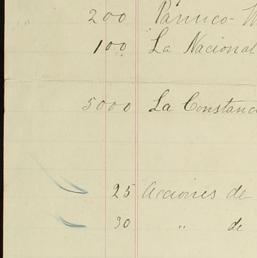 200 Pánuco-
100 La Nacional
5000 La Constanc
25 Acciones de
30 " de